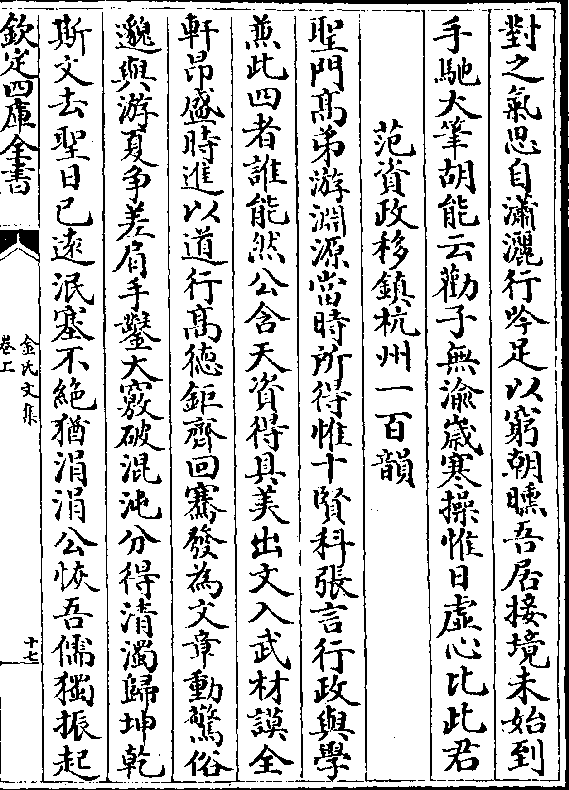 對之氣思自瀟灑行吟足以窮朝曛吾居接境未始到
手馳大筆胡能云勸子無渝嵗寒操惟日虛心比此君
范資政移鎮杭州一百韻
聖門髙弟游淵源當時所得惟十賢科張言行政與學
兼此四者誰能然公含天資得具美出文入武材謨全
軒昂盛時進以道行髙德鉅齊回騫發為文章動驚俗
邈與游夏争差肩手鑿大竅破混沌分得清濁歸坤乾
斯文去聖日已遠泯塞不絶猶涓涓公恢吾儒獨振起
欽定四庫全書
金氏文集
卷上
十七